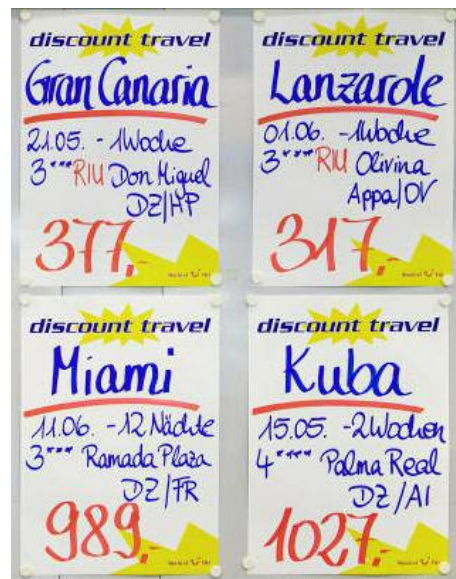 discount travel
Gran Canaria
21.05. - 1Woche
3*** RIU Don Miguel
DZ/HP
377,-
World of TUI
discount travel
Lanzarole
01.06. - 1Woche
3*** RIU Olivina
Appa/OV
317,-
World of TUI
discount travel
Miami
11.06. - 12 Nächte
3*** Ramada Plaza
DZ/FR
989,-
World of TUI
discount travel
Kuba
15.05. - 2Wochen
4**** Palma Real
DZ/AI
1027,-
World of TUI